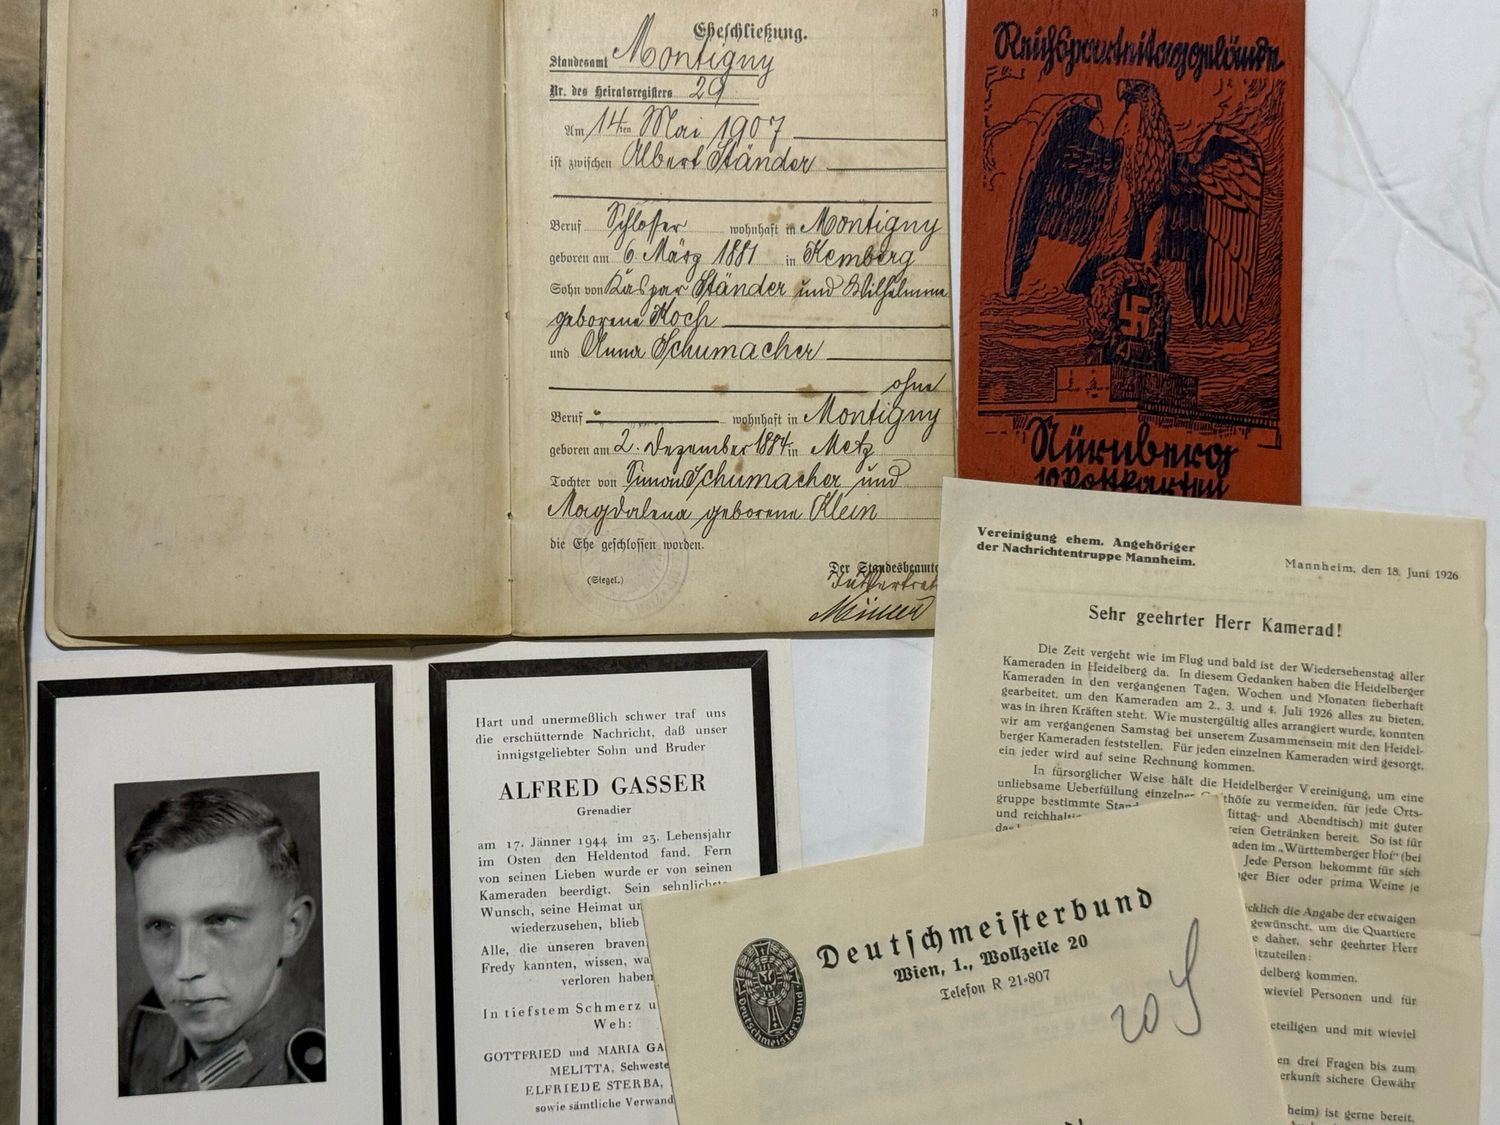 3
Eheschließung.
Standesamt Montigny
Nr. des Heiratsregisters 29
Am 14ten Mai 1907
ist zwischen Albert Ständer
Beruf Schlosser wohnhaft in Montigny
geboren am 6. März 1881 in Kemberg
Sohn von Kaspar Ständer und Wilhelmine
geborene Koch
und Anna Schumacher
ohne
Beruf wohnhaft in Montigny
geboren am 2. Dezember 1884 in Metz
Tochter von Simon Schumacher und
Magdalena geborene Klein
die Ehe geschlossen worden.
(Siegel.)
Der Standesbeamte
In Vertret
Reichsparteitaggelände
Nürnberg
10 Postkarten
Vereinigung ehem. Angehöriger
der Nachrichtentruppe Mannheim.
Mannheim, den 18. Juni 1926
Sehr geehrter Herr Kamerad!
Die Zeit vergeht wie im Flug und bald ist der Wiedersehenstag aller
Kameraden in Heidelberg da. In diesem Gedanken haben die Heidelberger
Kameraden in den vergangenen Tagen, Wochen und Monaten fieberhaft
gearbeitet, um den Kameraden am 2., 3. und 4. Juli 1926 alles zu bieten,
was in ihren Kräften steht. Wie mustergültig alles arrangiert wurde, konnten
wir am vergangenen Samstag bei unserem Zusammensein mit den Heidel-
berger Kameraden feststellen. Für jeden einzelnen Kameraden wird gesorgt,
ein jeder wird auf seine Rechnung kommen.
In fürsorglicher Weise hält die Heidelberger Vereinigung, um eine
unliebsame Ueberfüllung einzelner Gasthöfe zu vermeiden, für jede Orts-
gruppe bestimmte Stand Mittag- und Abendtisch) mit guter
und reichhalti reien Getränken bereit. So ist für
das aden im „Württemberger Hof" (bei
Jede Person bekommt für sich
nger Bier oder prima Weine je
cklich die Angabe der etwaigen
gewünscht, um die Quartiere
e daher, sehr geehrter Herr
itzuteilen:
idelberg kommen.
wieviel Personen und für
eteiligen und mit wieviel
en drei Fragen bis zum
erkunft sichere Gewähr
heim) ist gerne bereit,
Hart und unermeßlich schwer traf uns
die erschütternde Nachricht, daß unser
innigstgeliebter Sohn und Bruder
ALFRED GASSER
Grenadier
am 17. Jänner 1944 im 23. Lebensjahr
im Osten den Heldentod fand. Fern
von seinen Lieben wurde er von seinen
Kameraden beerdigt. Sein sehnlichste
Wunsch, seine Heimat un
wiederzusehen, blieb
Alle, die unseren braven,
Fredy kannten, wissen, wa
verloren haben
In tiefstem Schmerz u
Weh:
GOTTFRIED und MARIA GA
MELITTA, Schweste
ELFRIEDE STERBA,
sowie sämtliche Verwand
Deutschmeisterbund
Wien, 1., Wollzeile 20
Telefon R 21-807
Deutschmeisterbund
20 S